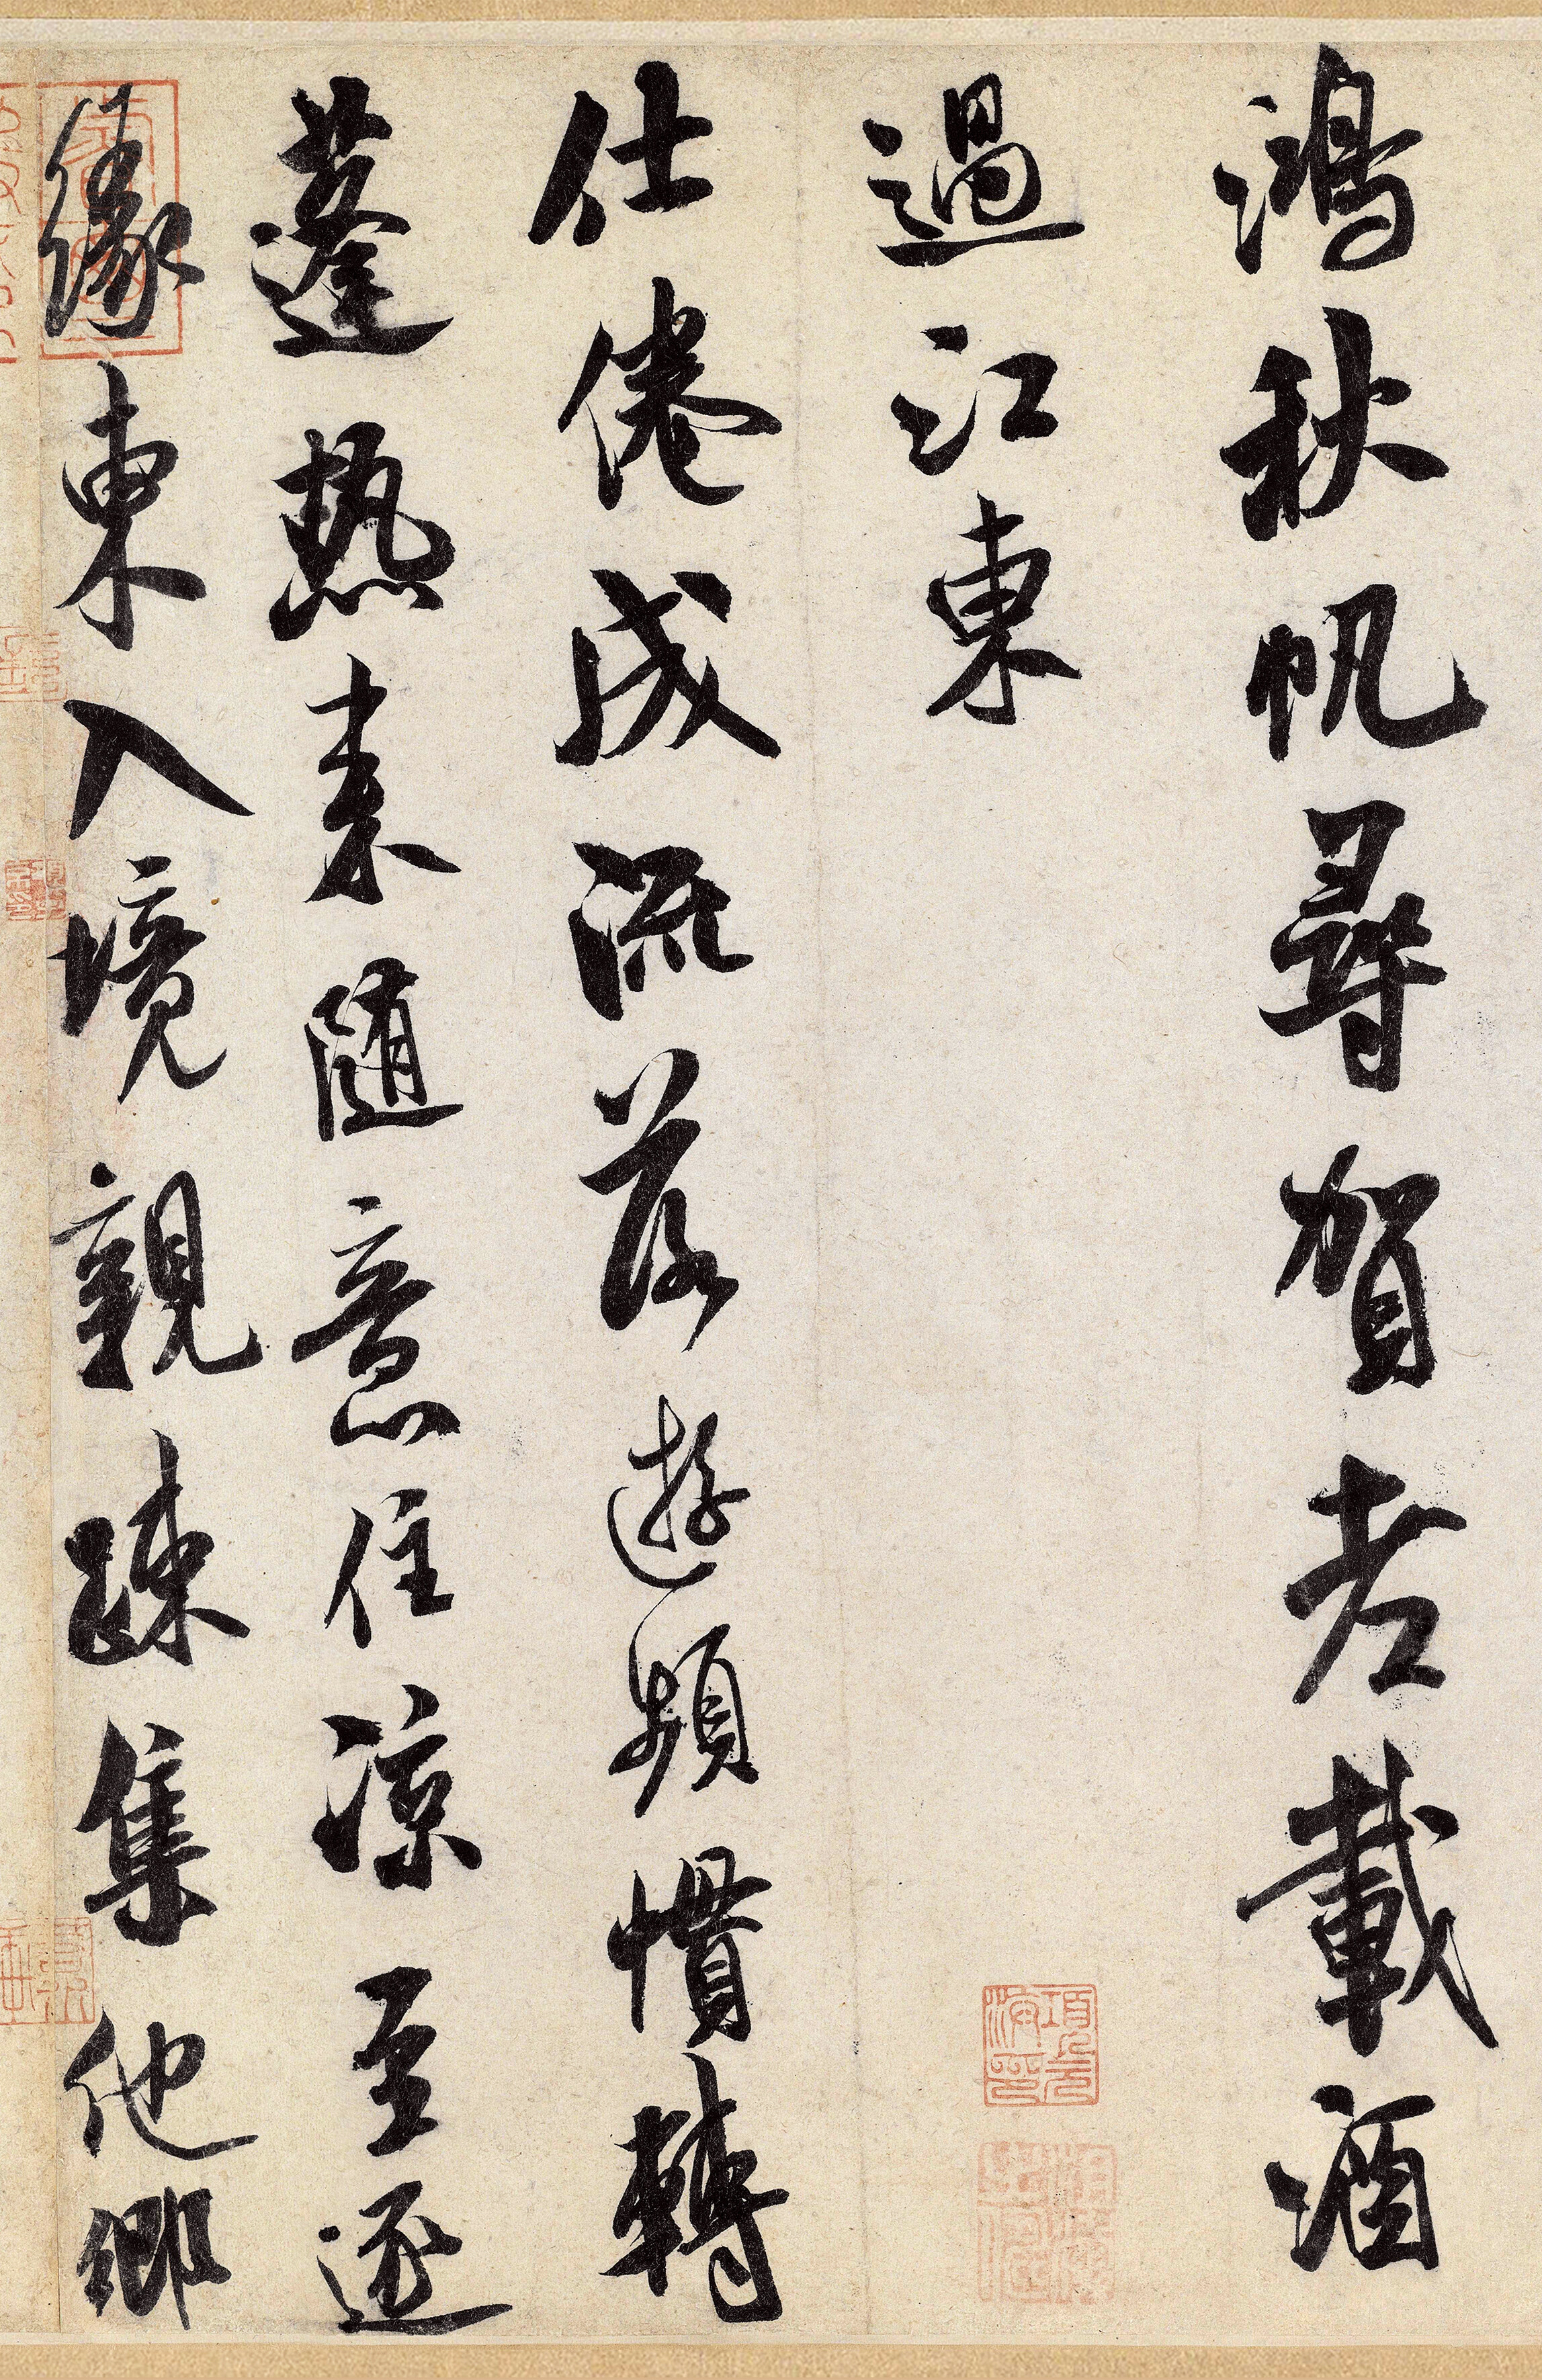 鴻秋帆尋賀老載酒
過江東
仕倦成流落遊頻慣轉
蓬熱来随意住涼至逐
緣東入境親疎集他鄉
項元
汴印